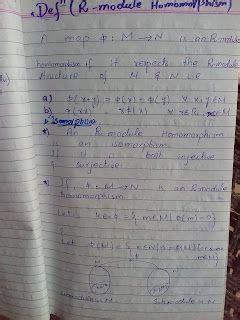 Defⁿ (R-module Homomorphism)
A map φ : M → N is an R-module
homomorphism if it respects the R-module
structure of M & N i.e
a) φ(x+y) = φ(x) + φ(y) ∀ x,y ∈ M
b) φ(rx) = rφ(x) ∀ r ∈ R, x ∈ M
Isomorphism
*) An R-module Homomorphism
is an isomorphism
if it is both injective
& surjective.
*) If φ : M → N is an R-module
homomorphism
Let ker φ = { m ∈ M | φ(m) = 0 }
Let φ(M) = { n ∈ N |
m ∈ M }
M φ N
Submodule of M Submodule of N